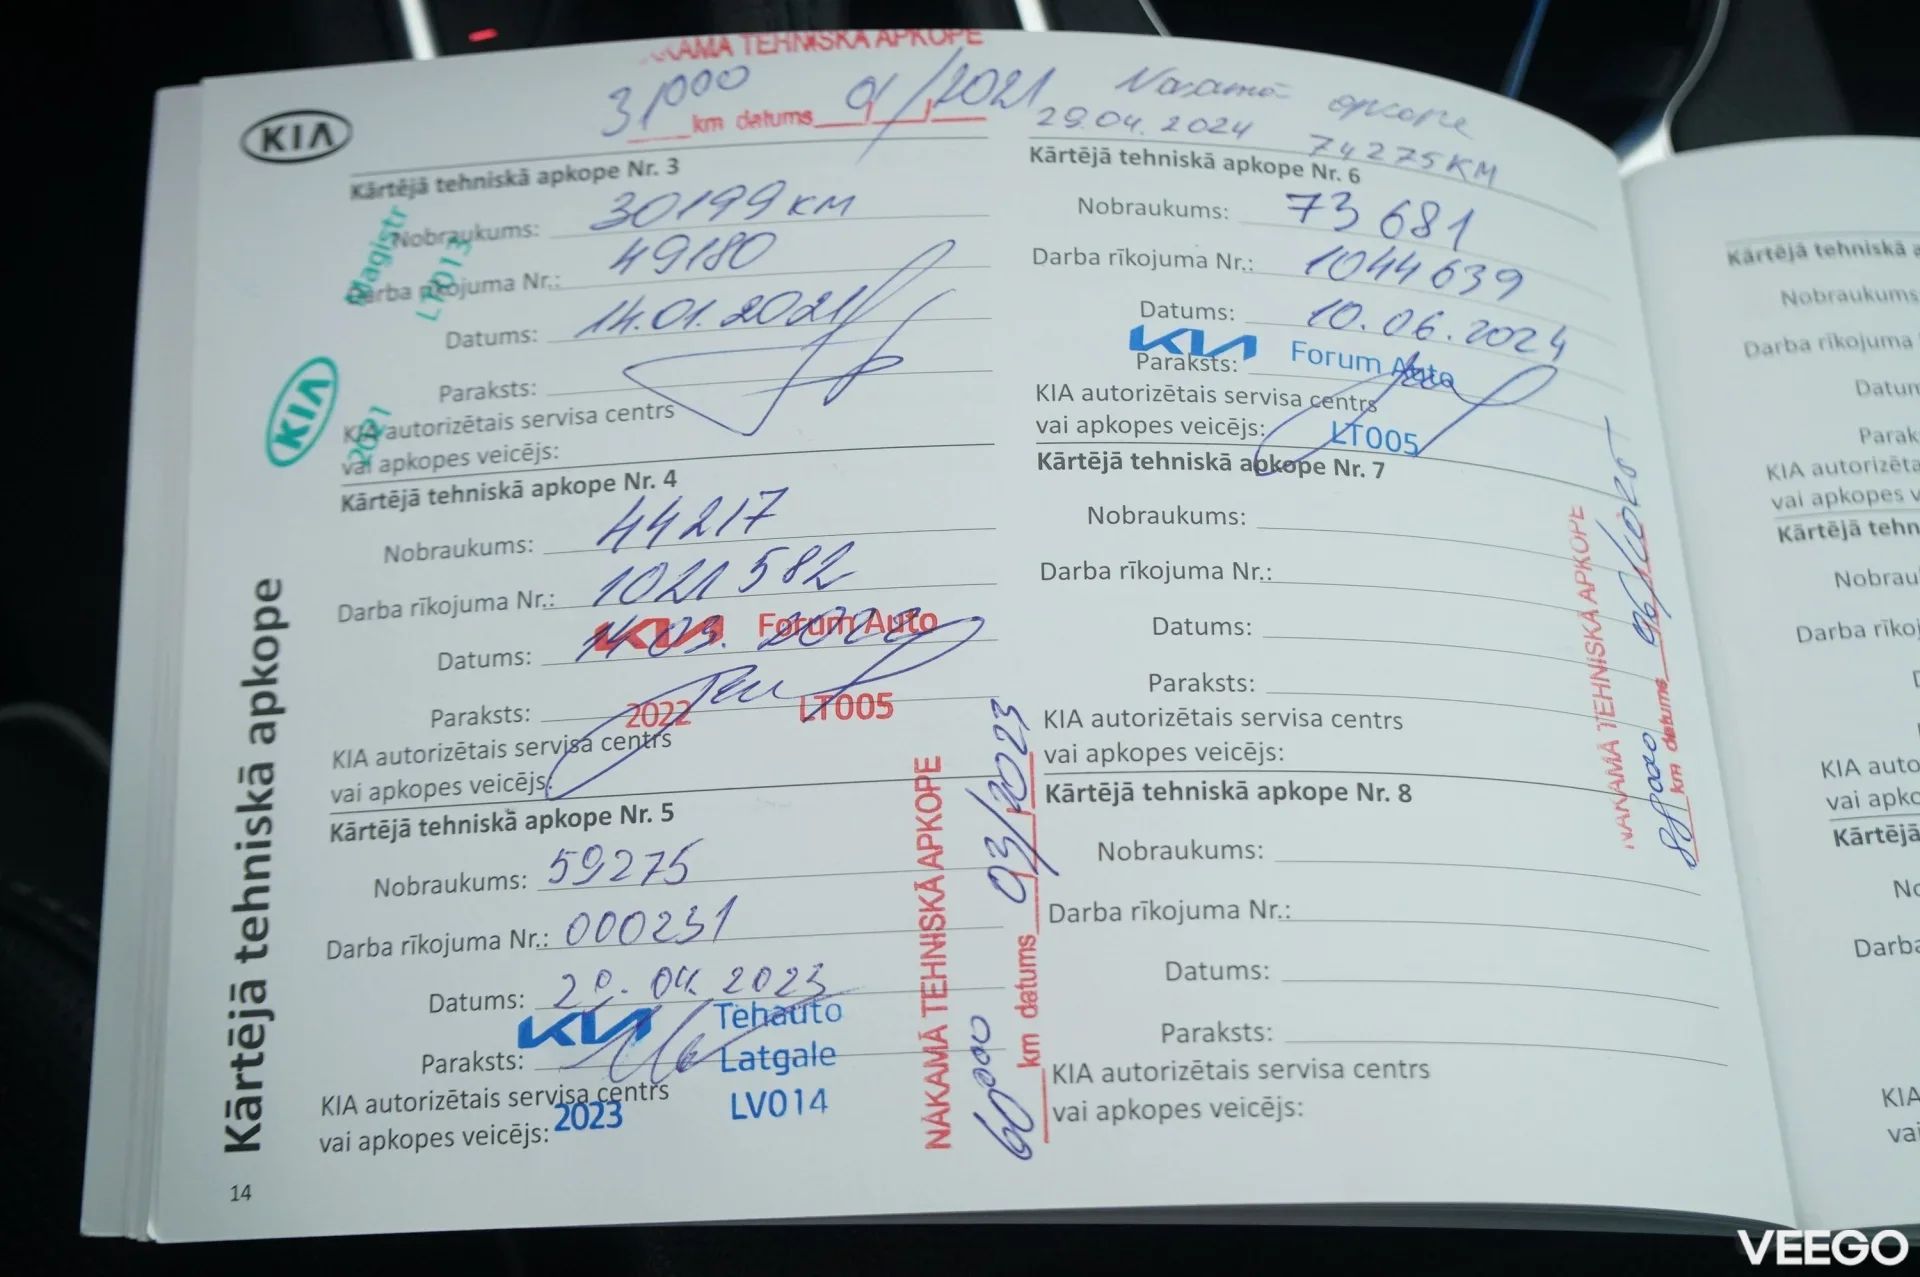 NĀKAMĀ TEHNISKĀ APKOPE
31000 km datums 01/2021
KIA
Kārtējā tehniskā apkope Nr. 3
Nobraukums: 30199 KM
Magistr
LT013
Darba rīkojuma Nr.: 49180
Datums: 14.01.2021
Paraksts:
KIA
2021
KIA autorizētais servisa centrs
vai apkopes veicējs:
Kārtējā tehniskā apkope Nr. 4
Nobraukums: 44217
Darba rīkojuma Nr.: 1021 582
KIA Forum Auto
Datums: 14.03.2022
Paraksts:
2022 LT005
KIA autorizētais servisa centrs
vai apkopes veicējs:
Kārtējā tehniskā apkope Nr. 5
Nobraukums: 59275
Darba rīkojuma Nr.: 000231
Datums: 20.04.2023
KIA Tehauto
Paraksts: Latgale
KIA autorizētais servisa centrs
vai apkopes veicējs: 2023 LV014
Kārtējā tehniskā apkope
14
NĀKAMĀ TEHNISKĀ APKOPE
60000 km datums 03/2023
Nākamā apkope
29.04.2024 74275KM
Kārtējā tehniskā apkope Nr. 6
Nobraukums: 73 681
Darba rīkojuma Nr.: 1044639
Datums: 10.06.2024
KIA Forum Auto
Paraksts:
KIA autorizētais servisa centrs
vai apkopes veicējs: LT005
Kārtējā tehniskā apkope Nr. 7
Nobraukums:
Darba rīkojuma Nr.:
Datums:
Paraksts:
KIA autorizētais servisa centrs
vai apkopes veicējs:
Kārtējā tehniskā apkope Nr. 8
Nobraukums:
Darba rīkojuma Nr.:
Datums:
Paraksts:
KIA autorizētais servisa centrs
vai apkopes veicējs:
NĀKAMĀ TEHNISKĀ APKOPE
88000 km datums 06/2025
Kārtējā tehniskā
Nobraukums
Darba rīkojuma
Datum
Parak
KIA autorizēta
vai apkopes v
Kārtējā tehn
Nobrau
Darba rīko
KIA auto
vai apko
Kārtējā
No
Darba
KIA
vai
VEEGO